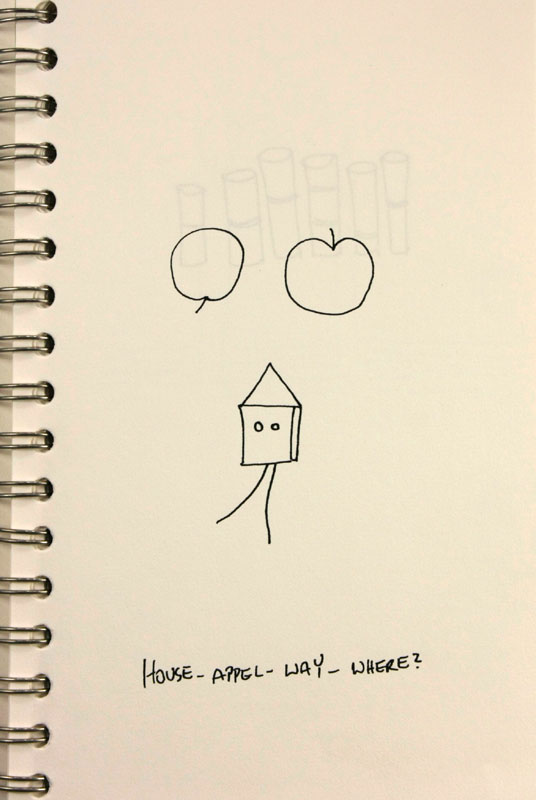 HOUSE - APPEL - WAY - WHERE?